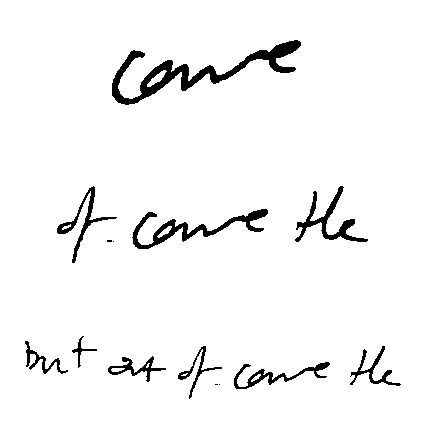 course
of course the
but of course the